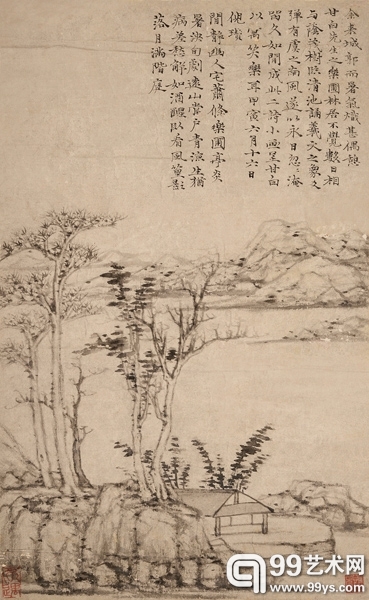 余來城郭而暑氣熾甚偶憩
甘白先生之樂圃林居不覺數日相
與蔭茂樹臨清池誦羲文之象爻
彈有虞之南風遂以永日忽忽淹
留久如間成此二詩小畫呈甘白
以寓笑樂耳甲寅六月十六日
倪瓚
閒靜幽人宅蕭條樂圃亭炎
暑向劇遠山當户青涼生
病差愁解如酒醒臥看風篁影
落月滿階庭
99艺术网
www.99ys.com